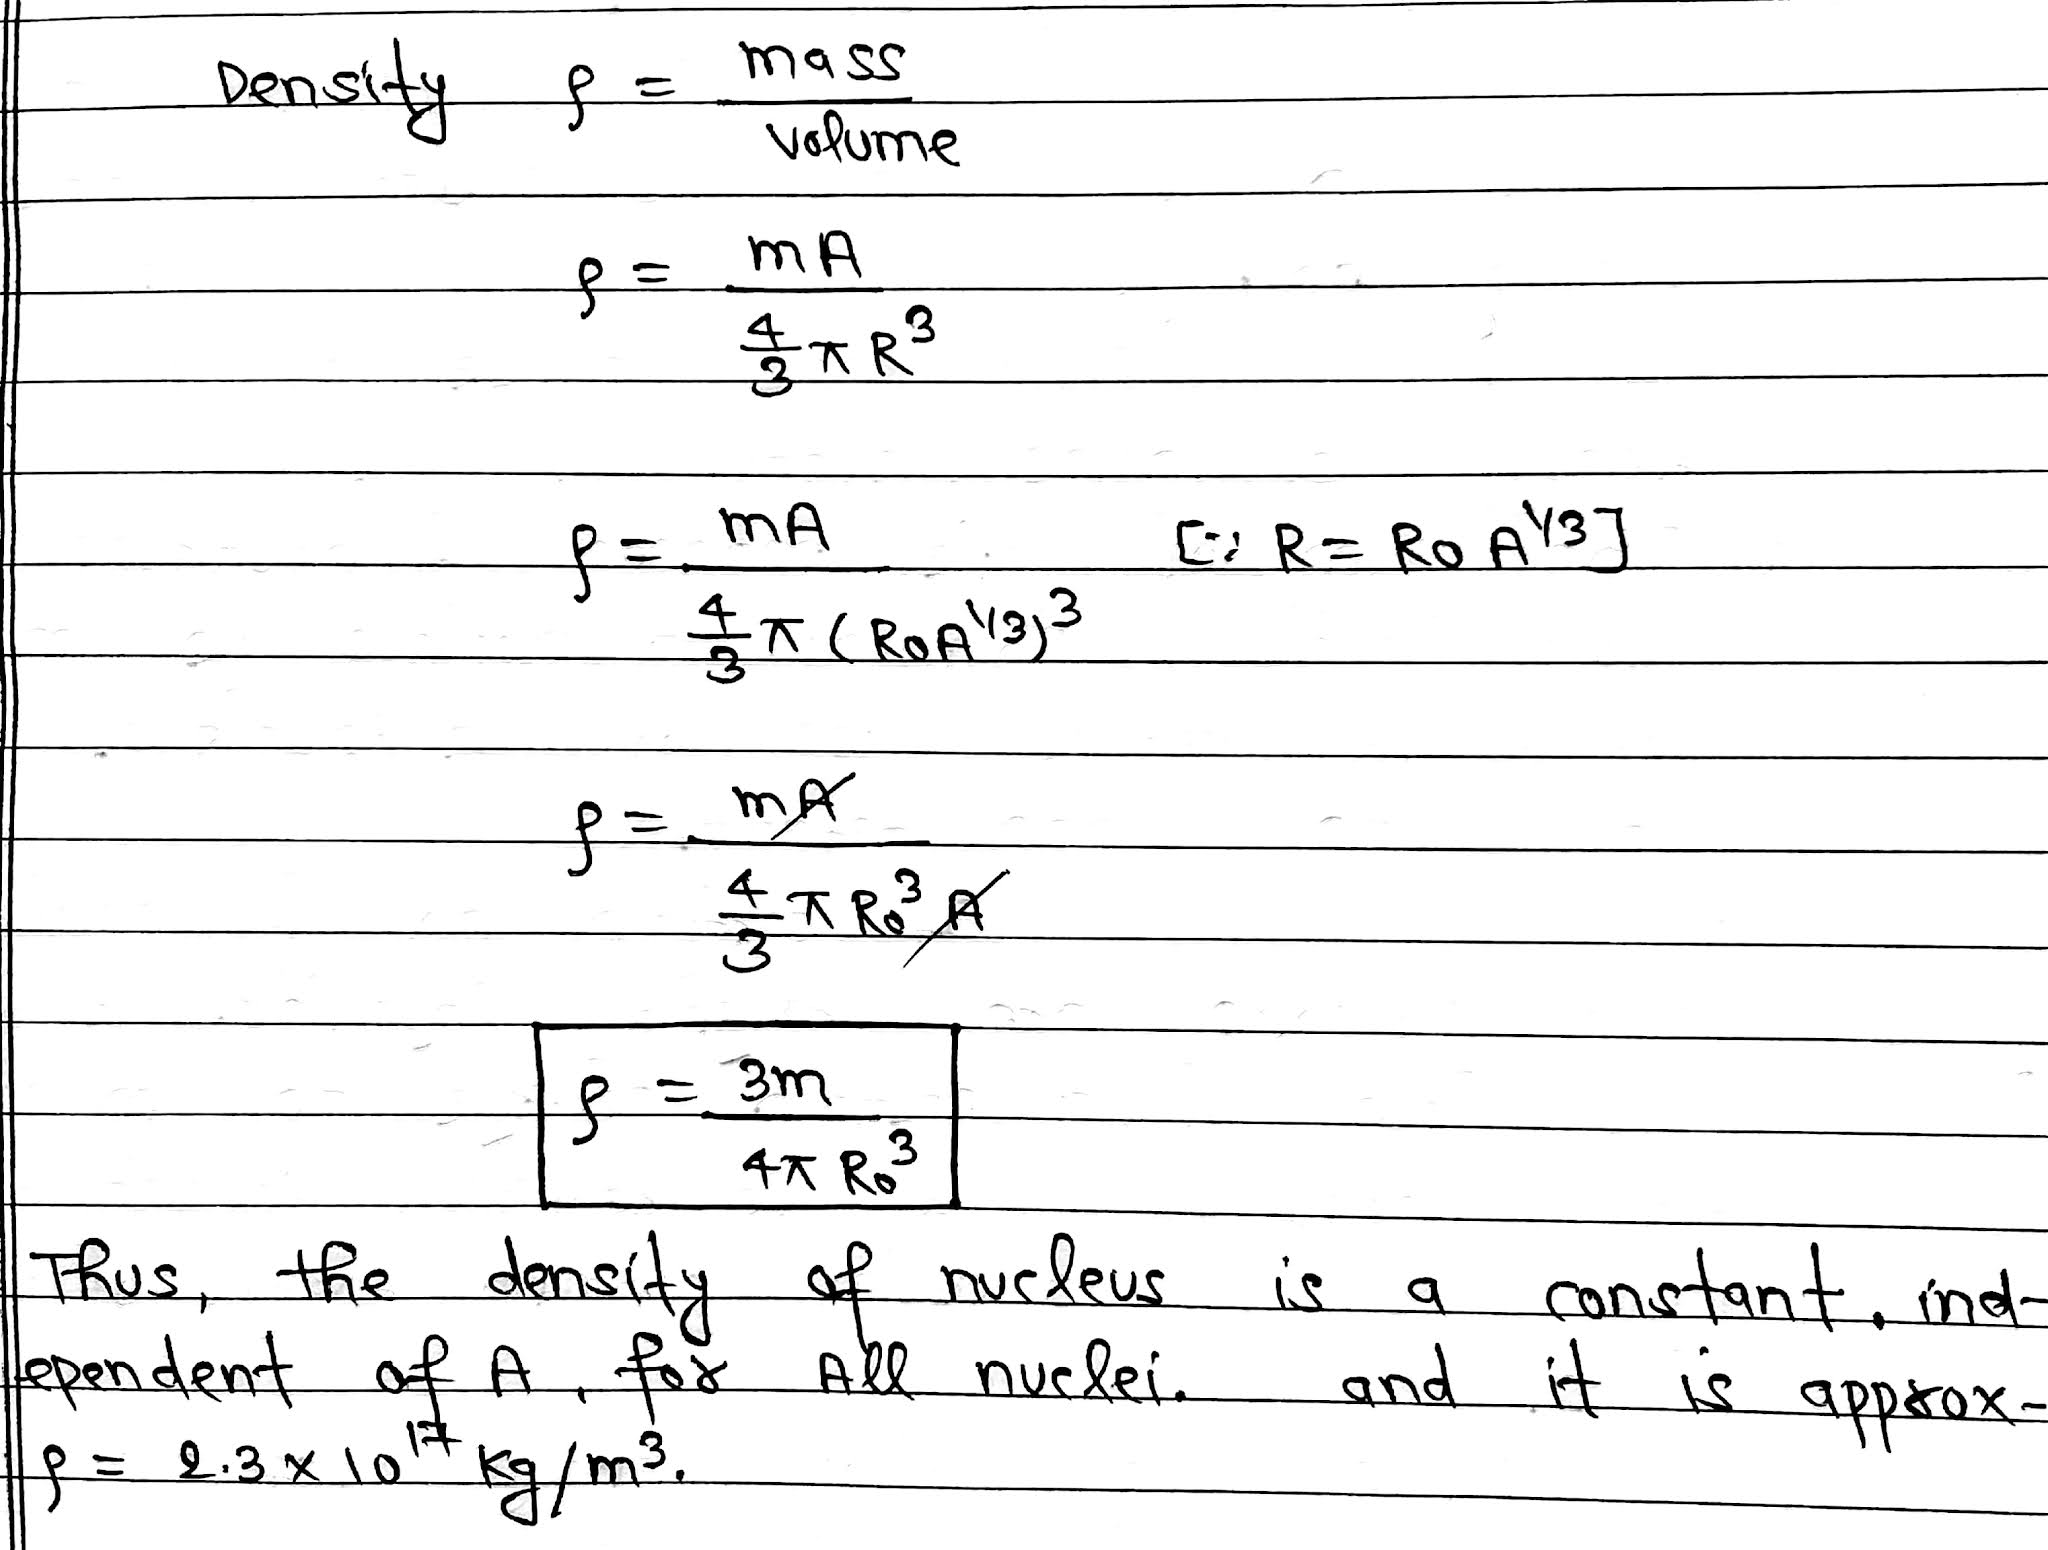 Density ρ = mass / volume
ρ = mA / 4/3 π R³
ρ = mA / 4/3 π (R₀A^1/3)³ [∵ R = R₀ A^1/3]
ρ = mA / 4/3 π R₀³ A
ρ = 3m / 4π R₀³
Thus, the density of nucleus is a constant, ind-
ependent of A, for All nuclei. and it is approx-
ρ = 2.3 × 10¹⁷ kg/m³.